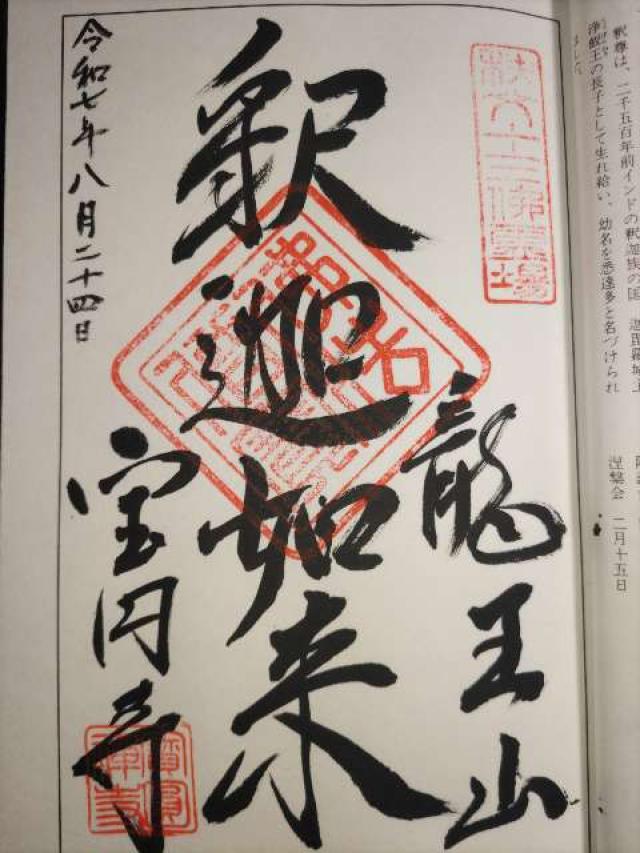 釈尊は、二千五百年前インドの釈迦族の国、迦毘羅城主
浄飯王の長子として生れ給い、幼名を悉達多と名づけられ
ました。
涅槃会 二月十五日
秩父十三佛霊場
龍王山
釈迦如来
令和七年八月二十四日
宝円寺
寶圓
禅寺